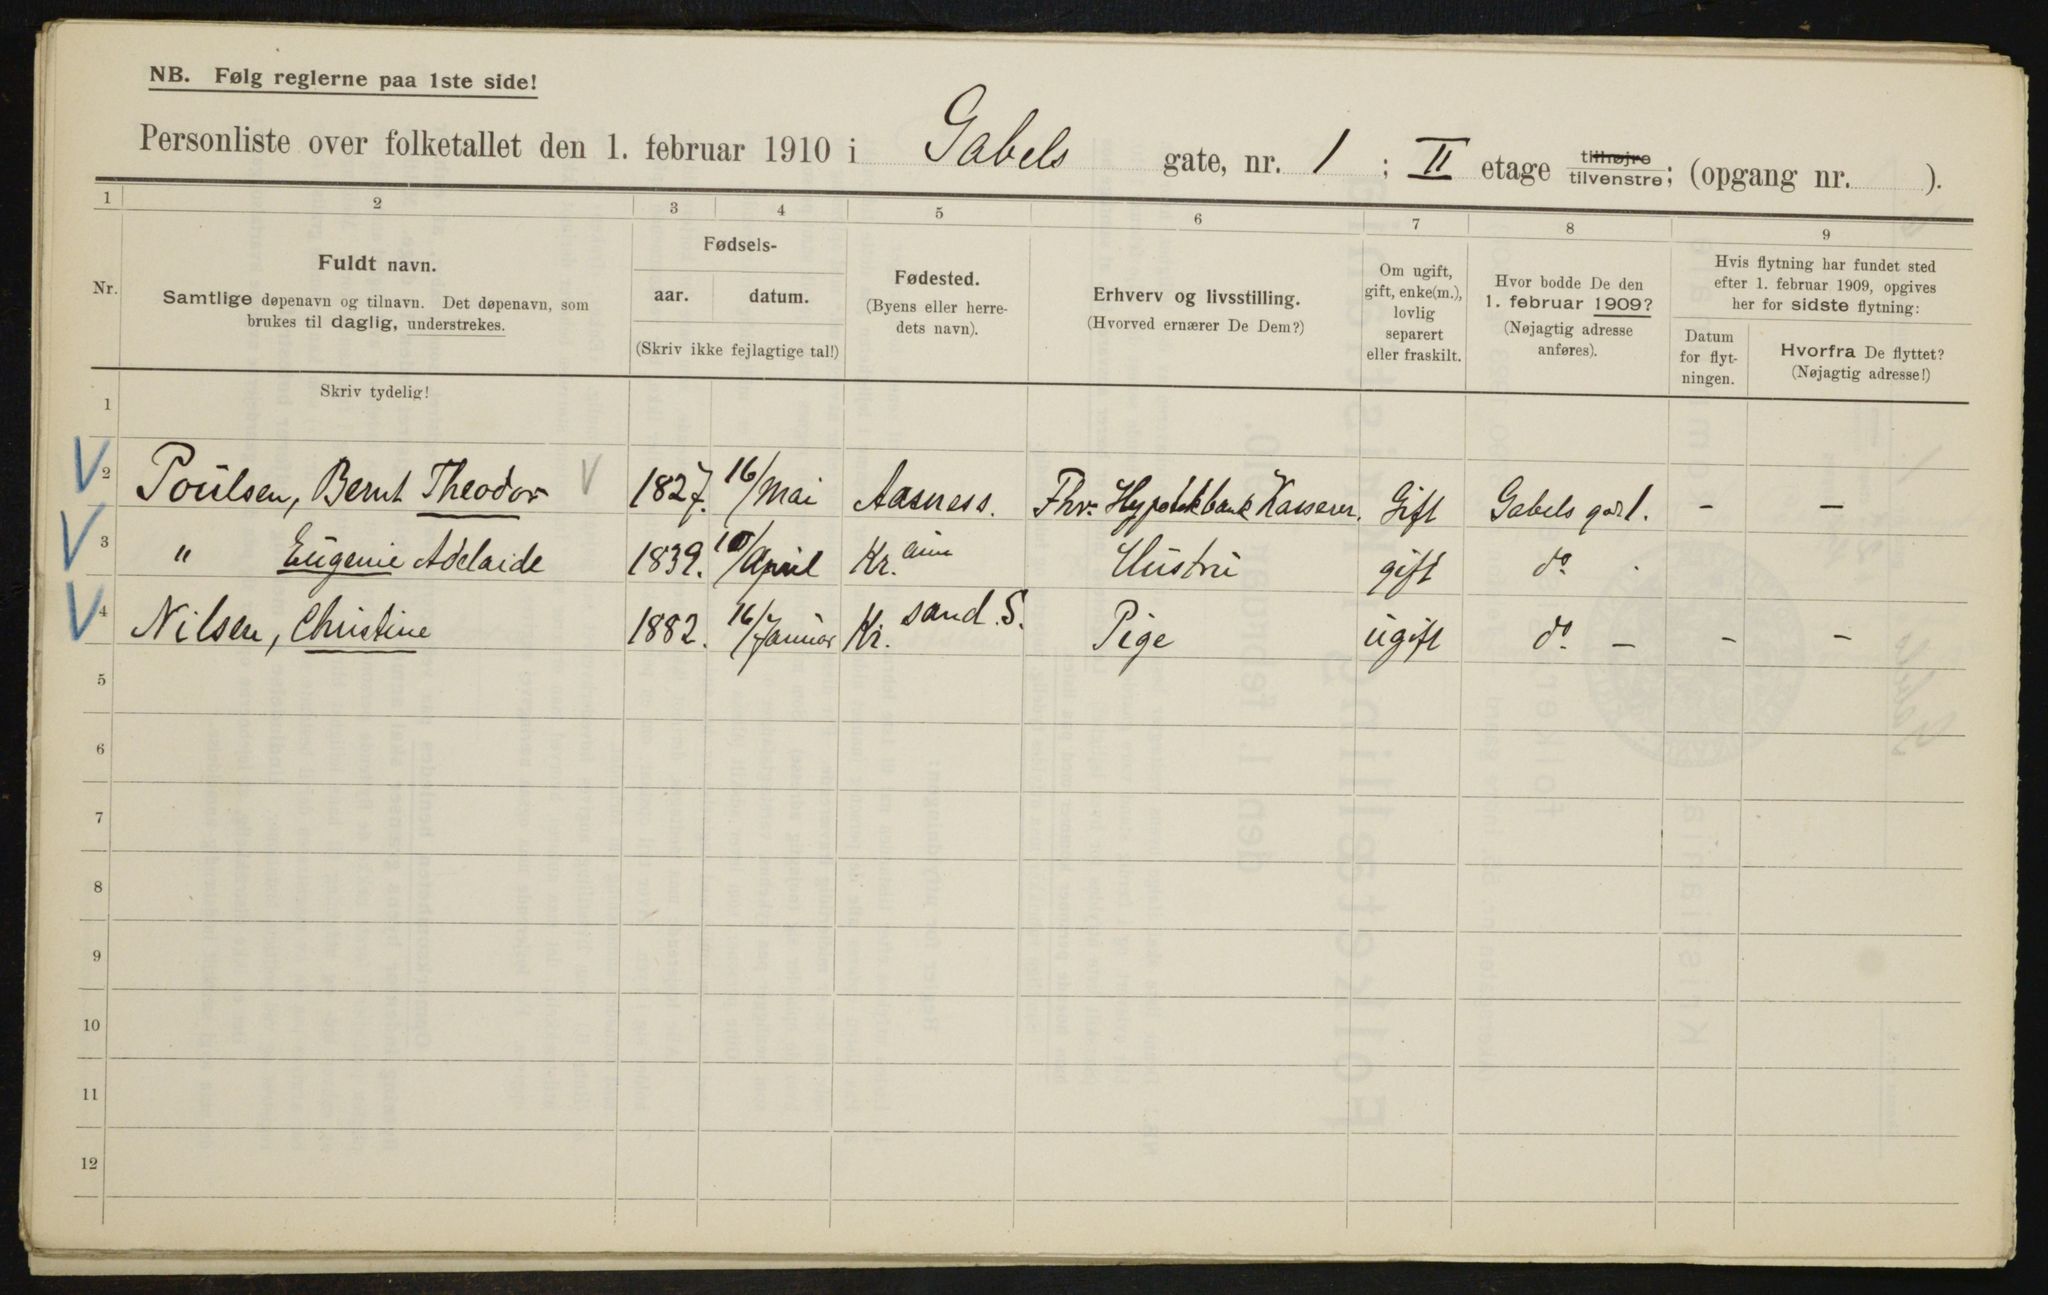 NB. Følg reglerne paa 1ste side!
Personliste over folketallet den 1. februar 1910 i Gabels gate, nr. 1 ; II etage tilhøjre tilvenstre; (opgang nr. ).
1 2 3 4 5 6 7 8 9
Nr.
Fuldt navn.
Samtlige døpenavn og tilnavn. Det døpenavn, som
brukes til daglig, understrekes.
Skriv tydelig!
Fødsels-
aar. datum.
(Skriv ikke fejlagtige tal!)
Fødested.
(Byens eller herre-
dets navn).
Erhverv og livsstilling.
(Hvorved ernærer De Dem?)
Om ugift,
gift, enke(m.),
lovlig
separert
eller fraskilt.
Hvor bodde De den
1. februar 1909?
(Nøjagtig adresse
anføres).
Hvis flytning har fundet sted
efter 1. februar 1909, opgives
her for sidste flytning:
Datum
for flyt-
ningen.
Hvorfra De flyttet?
(Nøjagtig adresse!)
1
2 Poulsen, Bernt Theodor 1827. 16/Mai Aasness. Fhv. Hypotekbank Kasserer. Gift Gabels gad 1. – –
3 " Eugenie Adelaide 1839. 10/April Kr. ania Hustru gift do.
4 Nilsen, Christine 1882. 16/Januar Kr. sand. S. Pige ugift do. – – –
5
6
7
8
9
10
11
12